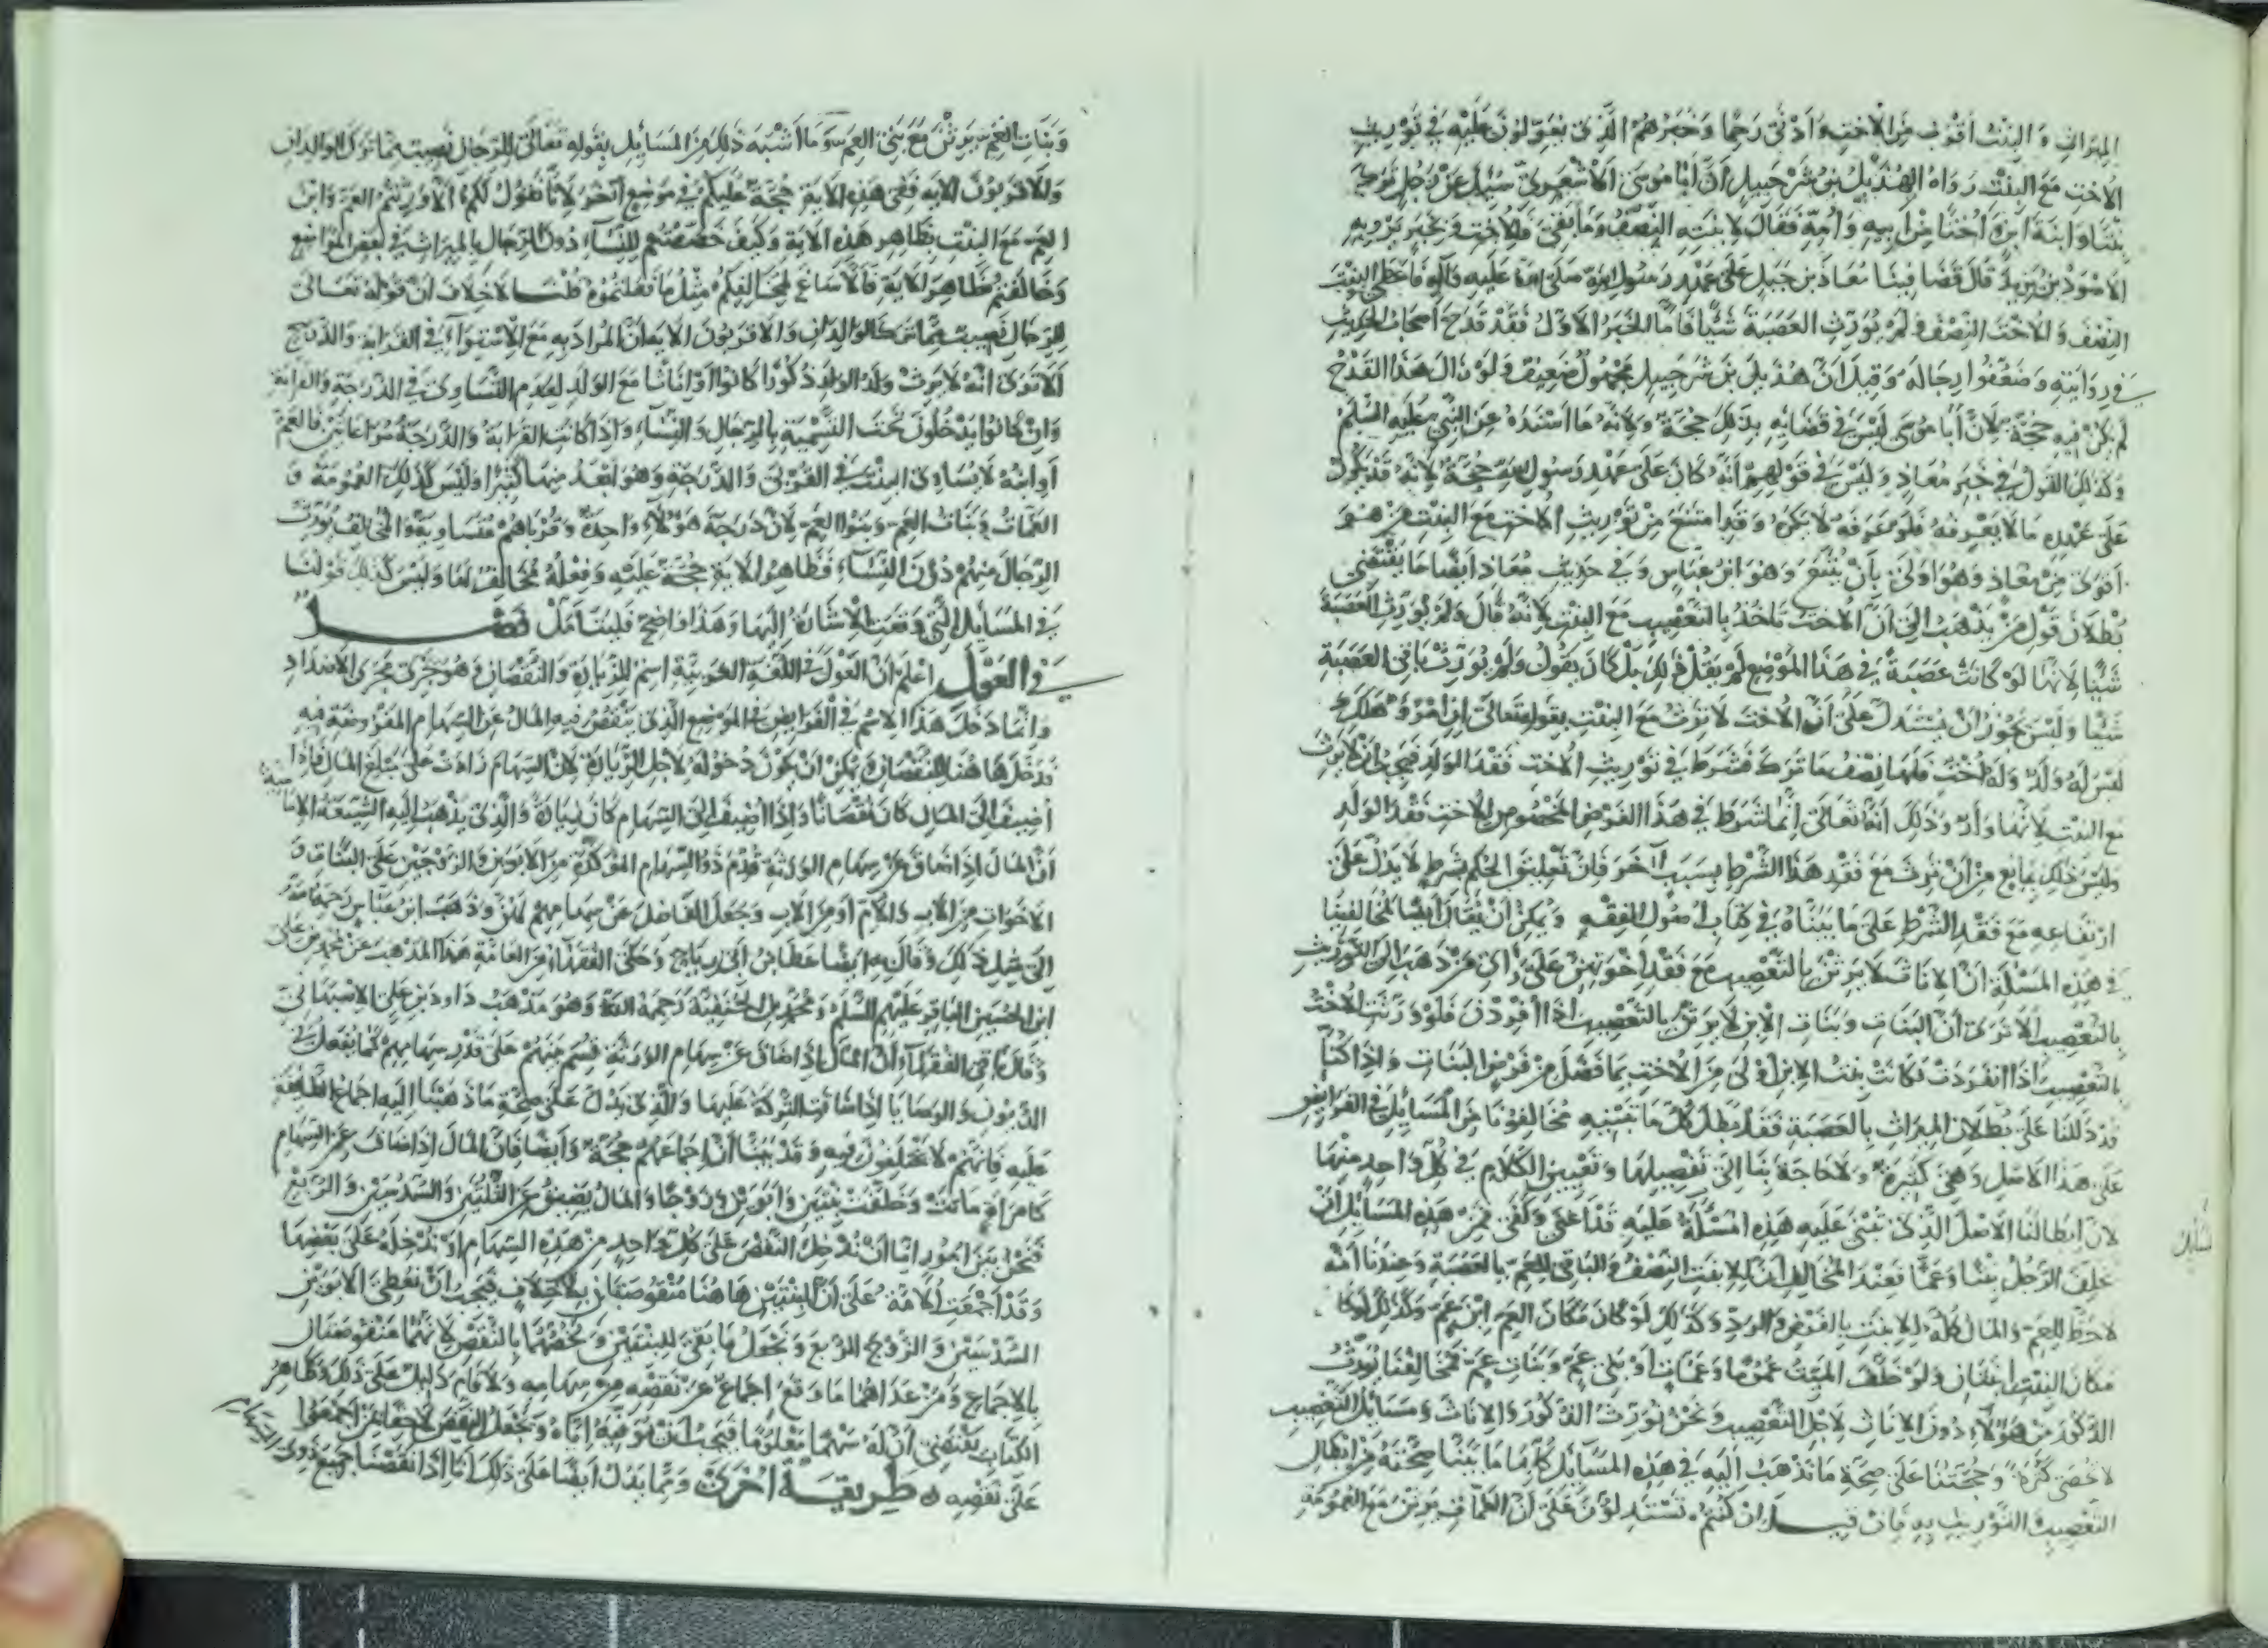 الميراث والبنت أقرب من الاخت وأدنى رحما وخبرهم الذي يعولون عليه في توريث
الاخت مع البنت رواه الهذيل بن شرحبيل أن أبا موسى الاشعري سئل عن رجل ترك
بنتا وابنة ابن واختا من أبيه وأمه فقال لابنته النصف وما بقي فللاخت وبخبر يرويه
الاسود بن يزيد قال قضا فينا معاذ بن جبل على عهد رسول الله صلى الله عليه وآله فاعطى البنت
النصف والاخت النصف ولم يورث العصبة شيئا فأما الخبر الاول فقد قدح أصحاب الحديث
في روايته وضعفوا رجاله وقيل أن هذيل بن شرحبيل مجهول ضعيف ولو زال هذا القدح
لم يكن فيه حجة لان أبا موسى ليس في قضائه بذلك حجة ولانه ما أسنده عن النبي عليه السلم
وكذلك القول في خبر معاذ وليس في قولهم أنه كان على عهد رسول الله حجة لانه قد يكون
على عهده ما لا يعرفه فلو عرفه لانكره وقد امتنع من توريث الاخت مع البنت من هو
أقوى من معاذ وهو أولى بأن يتبع وهو ابن عباس وفي حديث معاذ أيضا ما يقتضي
بطلان قول من يذهب الى أن الاخت تأخذ بالتعصيب مع البنت لانه قال ولم يورث العصبة
شيئا لانها لو كانت عصبة في هذا الموضع لم يقل ذلك بل كان يقول ولم يورث باقي العصبة
شيئا وليس يجوز أن يستدل على أن الاخت لا ترث مع البنت بقوله تعالى إن امرؤ هلك
ليس له ولد وله أخت فلها نصف ما ترك فشرط في توريث الاخت فقد الولد فيجب أن لا يرث
مع البنت لانها ولد وذلك أنه تعالى إنما شرط في هذا الفرض المخصوص للاخت فقد الولد
وليس ذلك بمانع من أن ترث مع فقد هذا الشرط بسبب آخر فان تعليق الحكم بشرط لا يدل على
ارتفاعه مع فقد الشرط على ما بيناه في كتاب أصول الفقه ويمكن أن يقال أيضا لمخالفينا
في هذه المسئلة أن الاناث لا يرثن بالتعصيب مع فقد اخوتهن على رأي من ذهب الى التوريث
بالتعصيب ألا ترى أن البنات وبنات الابن لا يرثن بالتعصيب اذا انفردن فلو ورثت الاخت
بالتعصيب اذا انفردت فكانت بنت الابن أولى من الاخت بما فضل من فرض البنات واذا كنا
قد دللنا على بطلان الميراث بالعصبة فقد بطل كل ما يبتنيه مخالفونا من المسائل في الفرائض
على هذا الاصل وهي كثيرة ولا حاجة بنا الى تفصيلها وتعيين الكلام في كل واحد منها
لان ابطالنا الاصل الذي تبنى عليه هذه المسئلة عليه قد أغنى وكفى فمن هذه المسائل أن
يخلف الرجل بنتا وعما فعند المخالف أن للبنت النصف والباقي للعم بالعصبة وعندنا أنه
لا حظ للعم والمال كله للابنت بالفرض والرد وكذلك لو كان مكان العم ابن عم وكذلك لو كان
مكان البنت ابنتان ولو خلف الميت عموما وعمات أو بني عم وبنات عم فمخالفنا يورث
الذكور من هؤلاء دون الاناث لاجل التعصيب ونحن نورث الذكور والاناث ومسائل التعصيب
لا تحصى كثرة وحجتنا على صحة ما نذهب اليه في هذه المسائل كلها ما بينا صحته من ابطال
التعصيب والتوريث به فان قيل ان كنتم تستدلون على أن العمات يرثن مع العمومة
وبنات العم يرثن مع بني العم وما أشبه ذلك من المسائل بقوله تعالى للرجال نصيب مما ترك الوالدان
والاقربون الاية ففي هذه الاية حجة عليكم في موضع آخر لانا نقول لكم ألا ورثتم العم وابن
العم مع البنت بظاهر هذه الاية وكيف خصصتم النساء دون الرجال بالميراث في بعض المواضع
وخالفتم ظاهر الاية فألا ساغ لمخالفكم مثل ما فعلتموه قلنا لا خلاف أن قوله تعالى
للرجال نصيب مما ترك الوالدان والاقربون الاية أن المراد به مع الاستواء في القرابة والدرج
ألا ترى أنه لا يرث ولد الولد ذكورا كانوا أو إناثا مع الولد لعدم التساوي في الدرجة والقرابة
وان كانوا يدخلون تحت التسمية بالرجال والنساء واذا كانت القرابة والدرجة مراعاتين فالعم
أو ابنه لا يساوي البنت في القربى والدرجة وهو أبعد منها كثيرا وليس كذلك العمومة و
العمات وبنات العم وبنو العم لان درجة هؤلاء واحدة وقرباهم متساوية والمخالف يورث
الرجال منهم دون النساء فظاهر الاية حجة عليه وفعله مخالف لها وليس كذلك قولنا
في المسائل التي وقعت الاشارة اليها وهذا واضح فليتأمل فصل
في العول اعلم أن العول في اللغة العربية اسم للزيادة والنقصان وهو يجري مجرى الاضداد
وانما دخل هذا الاسم في الفرائض في الموضع الذي ينقص فيه المال عن السهام المفروضة فيه
فدخل هاهنا النقصان ويمكن أن يكون دخوله لاجل الزيادة لان السهام زادت على مبلغ المال فاذا
أضيف الى المال كان نقصانا واذا أضيف الى السهام كان زيادة والذي يذهب اليه الشيعة الامامية
أن المال اذا ضاق عن سهام الورثة قدم ذوا السهام المؤكدة من الابوين والزوجين على البنات و
الاخوات من الاب والام أو من الاب وجعل الفاضل عن سهامهم لهن وذهب ابن عباس رحمه الله
الى مثل ذلك وقال به أيضا عطا بن أبي رباح وحكى الفقهاء من العامة هذا المذهب عن محمد بن علي
ابن الحسين الباقر عليهم السلم ومحمد بن الحنفية رحمة الله وهو مذهب داود بن علي الاصبهاني
وقال باقي الفقهاء أن المال اذا ضاق عن سهام الورثة قسم بينهم على قدر سهامهم كما يفعل في
الديون والوصايا اذا ضاقت التركة عليها والذي يدل على صحة ما ذهبنا اليه اجماع الطائفة
عليه فانهم لا يختلفون فيه وقد بينا أن اجماعهم حجة وأيضا فان المال اذا ضاق عن السهام
كامرأة ماتت وخلفت بنتين وأبوين وزوجا والمال يضيق عن الثلثين والسدسين والربع
فنحن بين أمور اما أن ندخل النقص على كل واحد من هذه السهام أو ندخله على بعضها
وقد أجمعت الامة على أن البنتين هاهنا منقوصتان بلا خلاف فيجب أن نعطي الابوين
السدسين والزوج الربع ونجعل ما بقي للبنتين ونخصهما بالنقص لانهما منقوصتان
بالاجماع ومن عداهما ما وقع اجماع على نقصه من سهامه ولا قام دليل على ذلك فظاهر
الكتاب يقتضي أن له سهما معلوما فيجب أن نوفيه اياه ونجعل النقص لاحقا بمن أجمعوا
على نقصه طريقة أخرى ومما يدل أيضا على ذلك أنا اذا نقصنا جميع ذوي السهام